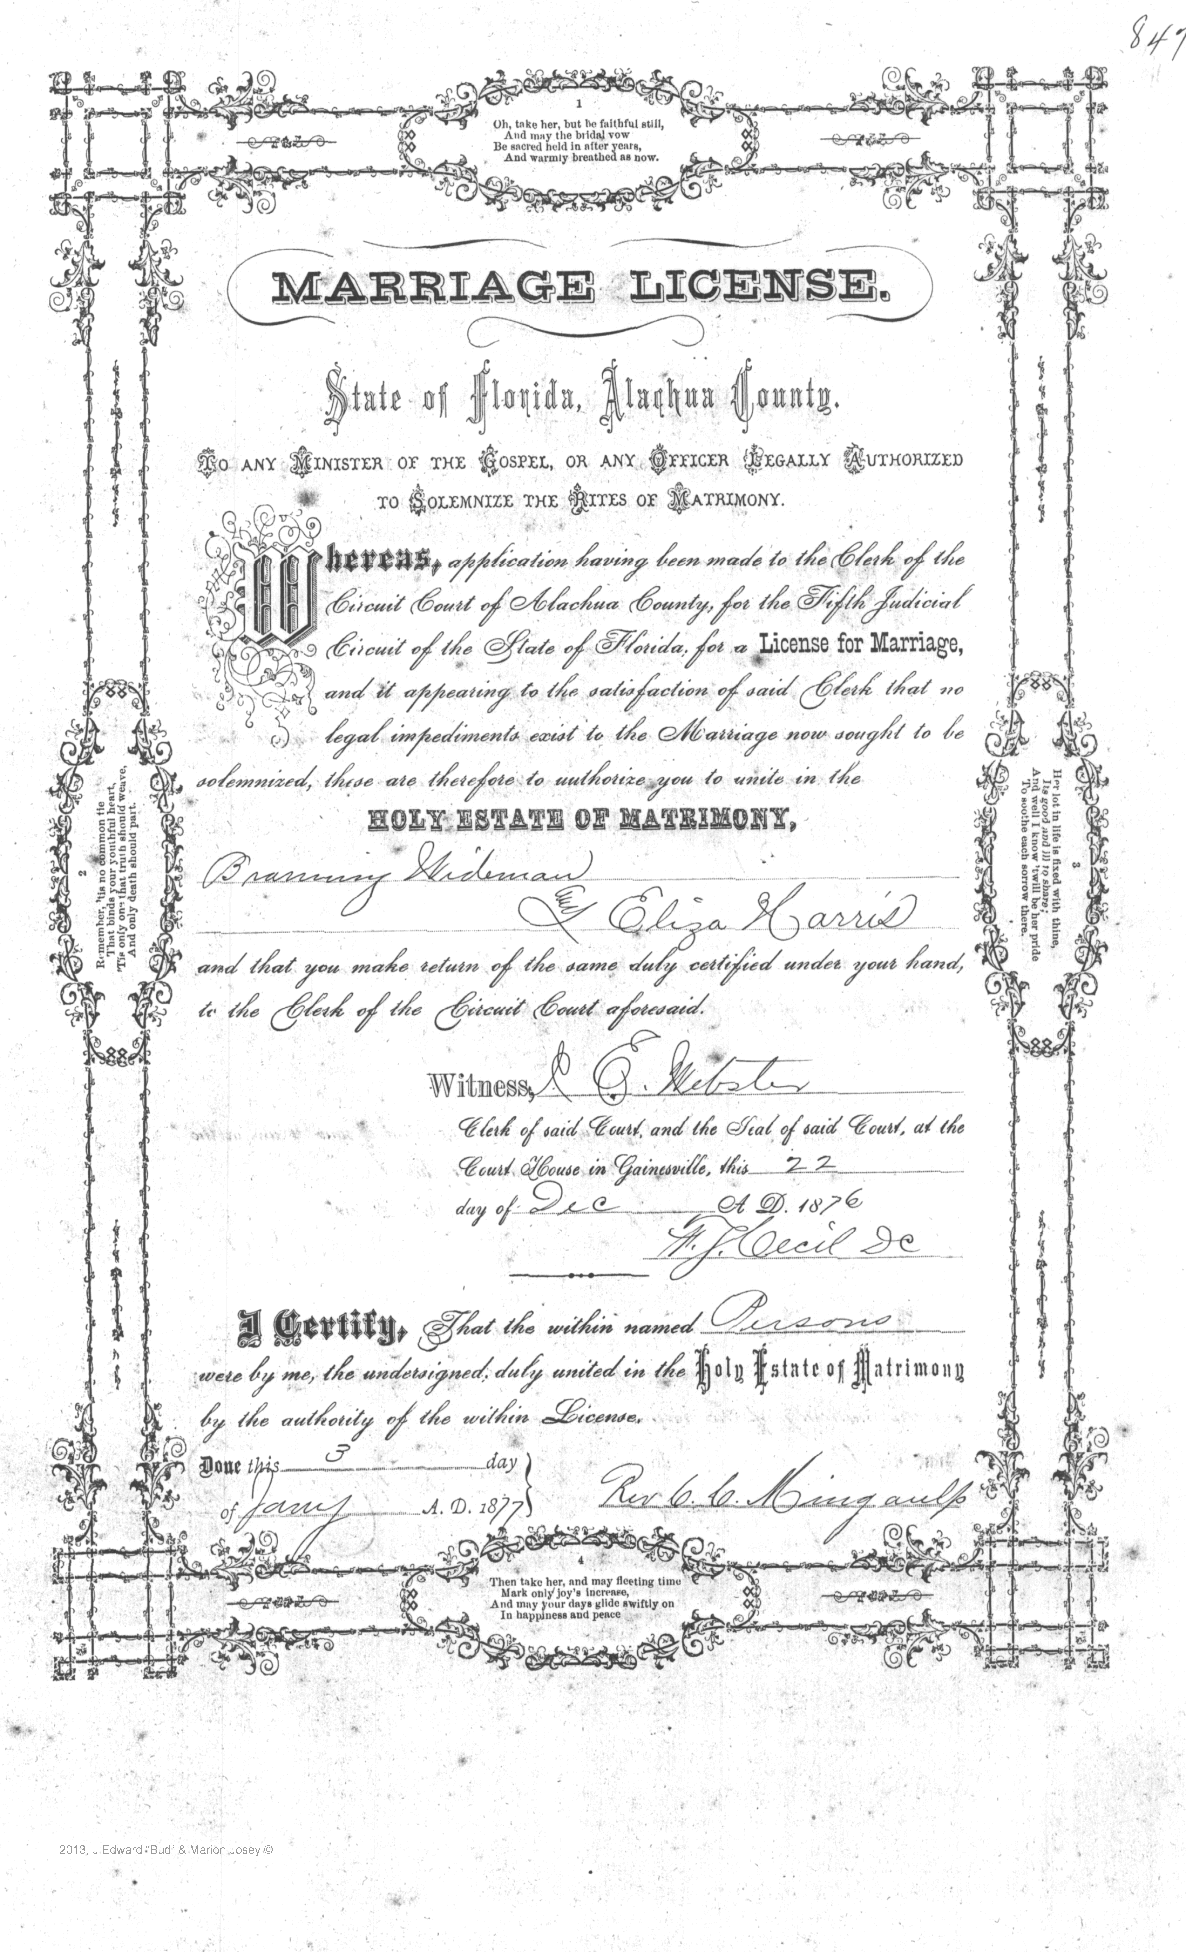 847
1
Oh, take her, but be faithful still,
And may the bridal vow
Be sacred held in after years,
And warmly breathed as now.
MARRIAGE LICENSE.
State of Florida, Alachua County.
TO ANY MINISTER OF THE GOSPEL, OR ANY OFFICER LEGALLY AUTHORIZED
TO SOLEMNIZE THE RITES OF MATRIMONY.
Whereas, application having been made to the Clerk of the
Circuit Court of Alachua County, for the Fifth Judicial
Circuit of the State of Florida, for a License for Marriage,
and it appearing to the satisfaction of said Clerk that no
legal impediments exist to the Marriage now sought to be
solemnized, these are therefore to authorize you to unite in the
HOLY ESTATE OF MATRIMONY,
Branning Wideman
Eliza Harris
and that you make return of the same duly certified under your hand,
to the Clerk of the Circuit Court aforesaid.
Witness, E. Webster
Clerk of said Court, and the Seal of said Court, at the
Court House in Gainesville, this 22
day of Dec A. D. 1876
Cecil DC
I Certify, That the within named Persons
were by me, the undersigned, duly united in the Holy Estate of Matrimony
by the authority of the within License.
Done this 3 day
of Jany A. D. 1877
Rev C. C.
2
Remember, 'tis no common tie
That binds your youthful heart,
'Tis only one that truth should weave,
And only death should part.
3
Her lot in life is fixed with thine,
Its good and ill to share;
And well I know 'twill be her pride
To soothe each sorrow there.
4
Then take her, and may fleeting time
Mark only joy's increase,
And may your days glide swiftly on
In happiness and peace
2013, J. Edward "Bud" & Marion Josey ©